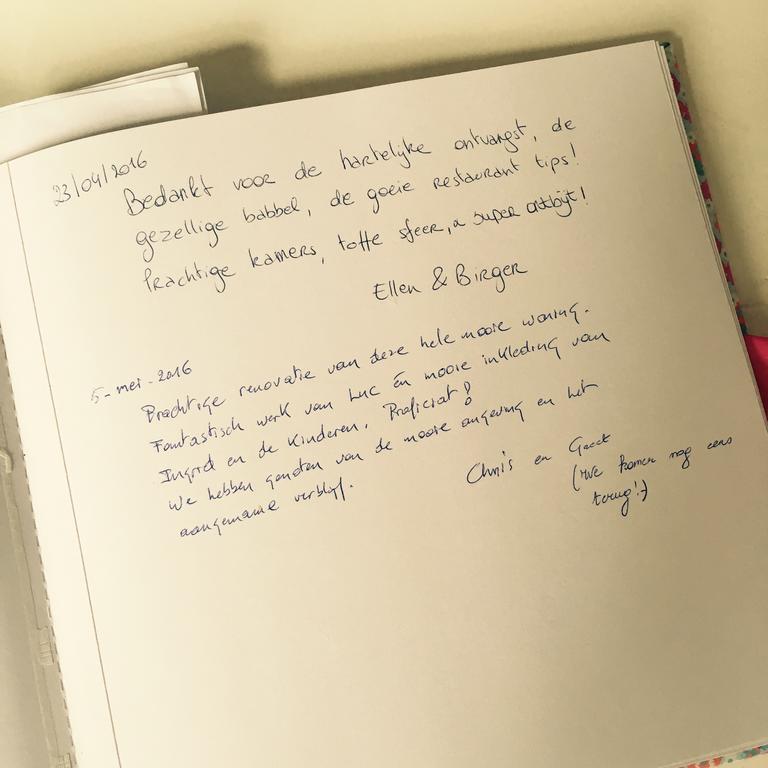 23/04/2016
Bedankt voor de hartelijke ontvangst, de
gezellige babbel, de goeie restaurant tips!
Prachtige kamers, toffe sfeer, a super ontbijt!
Ellen & Birger
5-mei-2016
Prachtige renovatie van deze hele mooie woning.
Fantastisch werk van Luc én mooie inkleding van
Ingrid en de kinderen. Proficiat!
We hebben genoten van de mooie omgeving en het
aangename verblijf.
Chris en Geert
(We komen nog eens
terug!:)